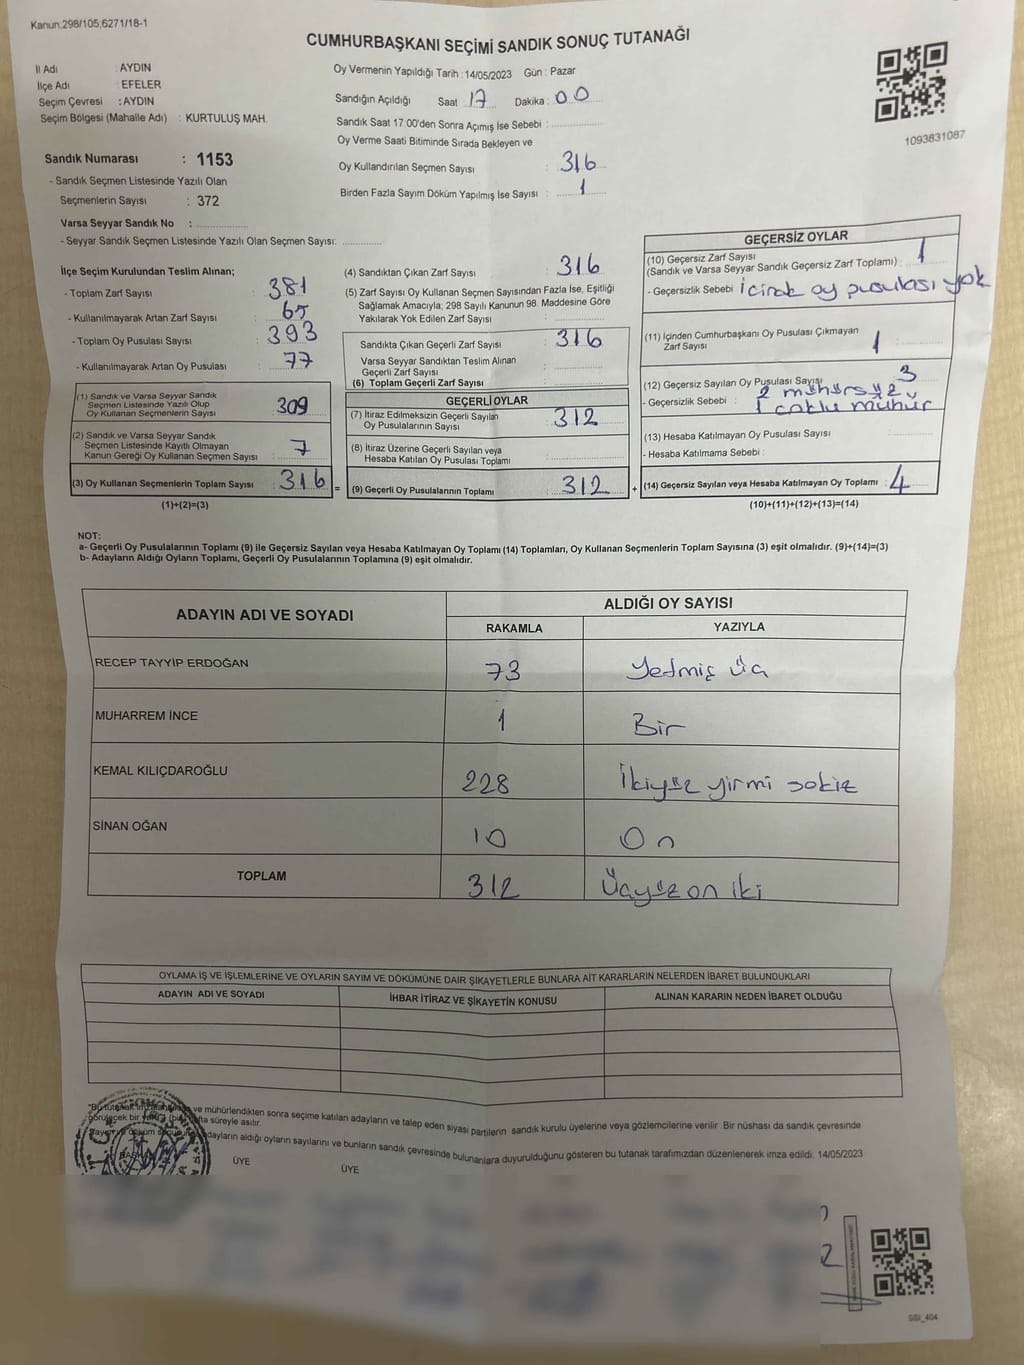 Kanun;298/105;6271/18-1
CUMHURBAŞKANI SEÇİMİ SANDIK SONUÇ TUTANAĞI
İl Adı : AYDIN
İlçe Adı : EFELER
Seçim Çevresi : AYDIN
Seçim Bölgesi (Mahalle Adı) : KURTULUŞ MAH.
Oy Vermenin Yapıldığı Tarih : 14/05/2023 Gün : Pazar
Sandığın Açıldığı Saat : 17 Dakika : 00
Sandık Saat 17:00'den Sonra Açımış İse Sebebi :
Oy Verme Saati Bitiminde Sırada Bekleyen ve
Oy Kullandırılan Seçmen Sayısı : 316
Birden Fazla Sayım Döküm Yapılmış İse Sayısı : 1
1093831087
Sandık Numarası : 1153
- Sandık Seçmen Listesinde Yazılı Olan
Seçmenlerin Sayısı : 372
Varsa Seyyar Sandık No :
- Seyyar Sandık Seçmen Listesinde Yazılı Olan Seçmen Sayısı:
İlçe Seçim Kurulundan Teslim Alınan;
- Toplam Zarf Sayısı : 381
- Kullanılmayarak Artan Zarf Sayısı : 65
- Toplam Oy Pusulası Sayısı : 393
- Kullanılmayarak Artan Oy Pusulası : 77
(1) Sandık ve Varsa Seyyar Sandık
Seçmen Listesinde Yazılı Olup
Oy Kullanan Seçmenlerin Sayısı : 309
(2) Sandık ve Varsa Seyyar Sandık
Seçmen Listesinde Kayıtlı Olmayan
Kanun Gereği Oy Kullanan Seçmen Sayısı : 7
(3) Oy Kullanan Seçmenlerin Toplam Sayısı : 316 =
(1)+(2)=(3)
(4) Sandıktan Çıkan Zarf Sayısı : 316
(5) Zarf Sayısı Oy Kullanan Seçmen Sayısından Fazla İse, Eşitliği
Sağlamak Amacıyla; 298 Sayılı Kanunun 98. Maddesine Göre
Yakılarak Yok Edilen Zarf Sayısı :
Sandıkta Çıkan Geçerli Zarf Sayısı : 316
Varsa Seyyar Sandıktan Teslim Alınan
Geçerli Zarf Sayısı :
(6) Toplam Geçerli Zarf Sayısı :
GEÇERLİ OYLAR
(7) İtiraz Edilmeksizin Geçerli Sayılan
Oy Pusulalarının Sayısı : 312
(8) İtiraz Üzerine Geçerli Sayılan veya
Hesaba Katılan Oy Pusulası Toplamı :
(9) Geçerli Oy Pusulalarının Toplamı : 312 +
GEÇERSİZ OYLAR
(10) Geçersiz Zarf Sayısı
(Sandık ve Varsa Seyyar Sandık Geçersiz Zarf Toplamı) : 1
- Geçersizlik Sebebi : oy pusulası yok
(11) İçinden Cumhurbaşkanı Oy Pusulası Çıkmayan
Zarf Sayısı : 1
(12) Geçersiz Sayılan Oy Pusulası Sayısı 3
- Geçersizlik Sebebi : 2 mühürsüz
1 çoklu mühür
(13) Hesaba Katılmayan Oy Pusulası Sayısı :
- Hesaba Katılmama Sebebi :
(14) Geçersiz Sayılan veya Hesaba Katılmayan Oy Toplamı : 4
(10)+(11)+(12)+(13)=(14)
NOT:
a- Geçerli Oy Pusulalarının Toplamı (9) ile Geçersiz Sayılan veya Hesaba Katılmayan Oy Toplamı (14) Toplamları, Oy Kullanan Seçmenlerin Toplam Sayısına (3) eşit olmalıdır. (9)+(14)=(3)
b- Adayların Aldığı Oyların Toplamı, Geçerli Oy Pusulalarının Toplamına (9) eşit olmalıdır.
ADAYIN ADI VE SOYADI ALDIĞI OY SAYISI
RAKAMLA YAZIYLA
RECEP TAYYİP ERDOĞAN 73 Yetmiş üç
MUHARREM İNCE 1 Bir
KEMAL KILIÇDAROĞLU 228 İkiyüz yirmi sekiz
SİNAN OĞAN 10 On
TOPLAM 312 Üçyüz on iki
OYLAMA İŞ VE İŞLEMLERİNE VE OYLARIN SAYIM VE DÖKÜMÜNE DAİR ŞİKAYETLERLE BUNLARA AİT KARARLARIN NELERDEN İBARET BULUNDUKLARI
ADAYIN ADI VE SOYADI İHBAR İTİRAZ VE ŞİKAYETİN KONUSU ALINAN KARARIN NEDEN İBARET OLDUĞU
ve mühürlendikten sonra seçime katılan adayların ve talep eden siyasi partilerin sandık kurulu üyelerine veya gözlemcilerine verilir. Bir nüshası da sandık çevresinde
görülecek bir süreyle asılır.
adayların aldığı oyların sayılarını ve bunların sandık çevresinde bulunanlara duyurulduğunu gösteren bu tutanak tarafımızdan düzenlenerek imza edildi. 14/05/2023
BAŞKAN ÜYE ÜYE
SSI_404